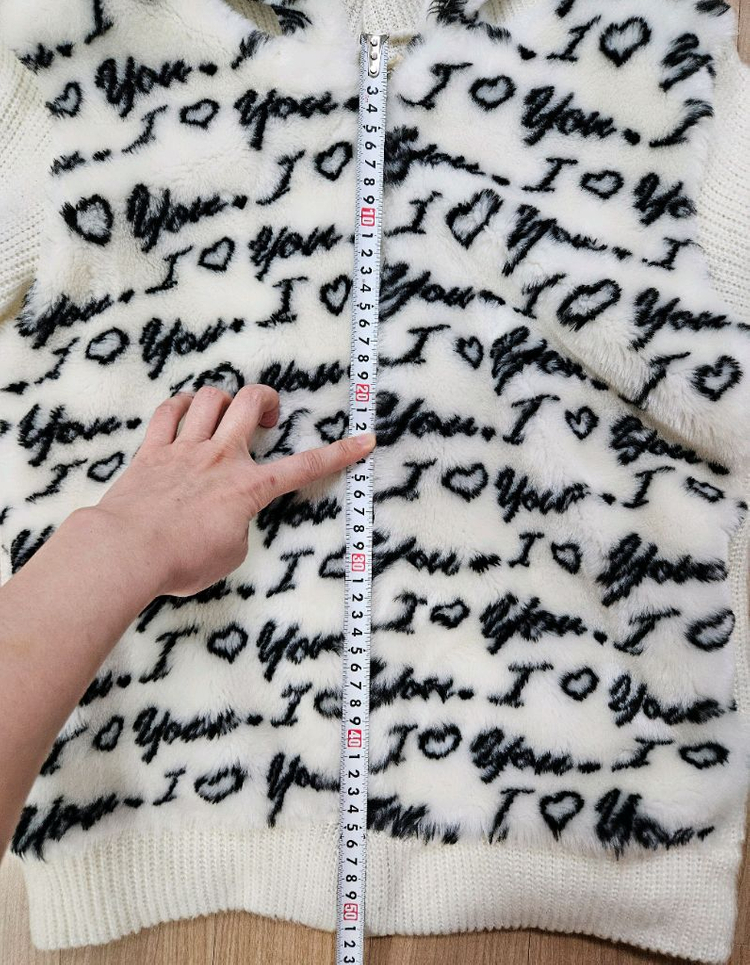 I ♡
♡ You. I ♡ You.
I ♡ You I
I ♡ You. I ♡ You
♡ You. I ♡ You. I
I ♡ You
You. I ♡ You. I ♡ You.
I ♡ You. I ♡ You. I ♡
I ♡ You
You. I ♡ You. I ♡ You.
I ♡ I ♡ You. I ♡
You You. I ♡ You
I ♡ I ♡ You. I ♡
I ♡ You You. I ♡ You.
You. I ♡ I ♡ You. I ♡
I ♡ You
You. I ♡ You.
3 4 5 6 7 8 9 10 1 2 3 4 5 6 7 8 9 20 1 2 5 6 7 8 9 30 1 2 3 4 5 6 7 8 9 40 1 2 3 4 5 6 7 8 9 50 1 2 3